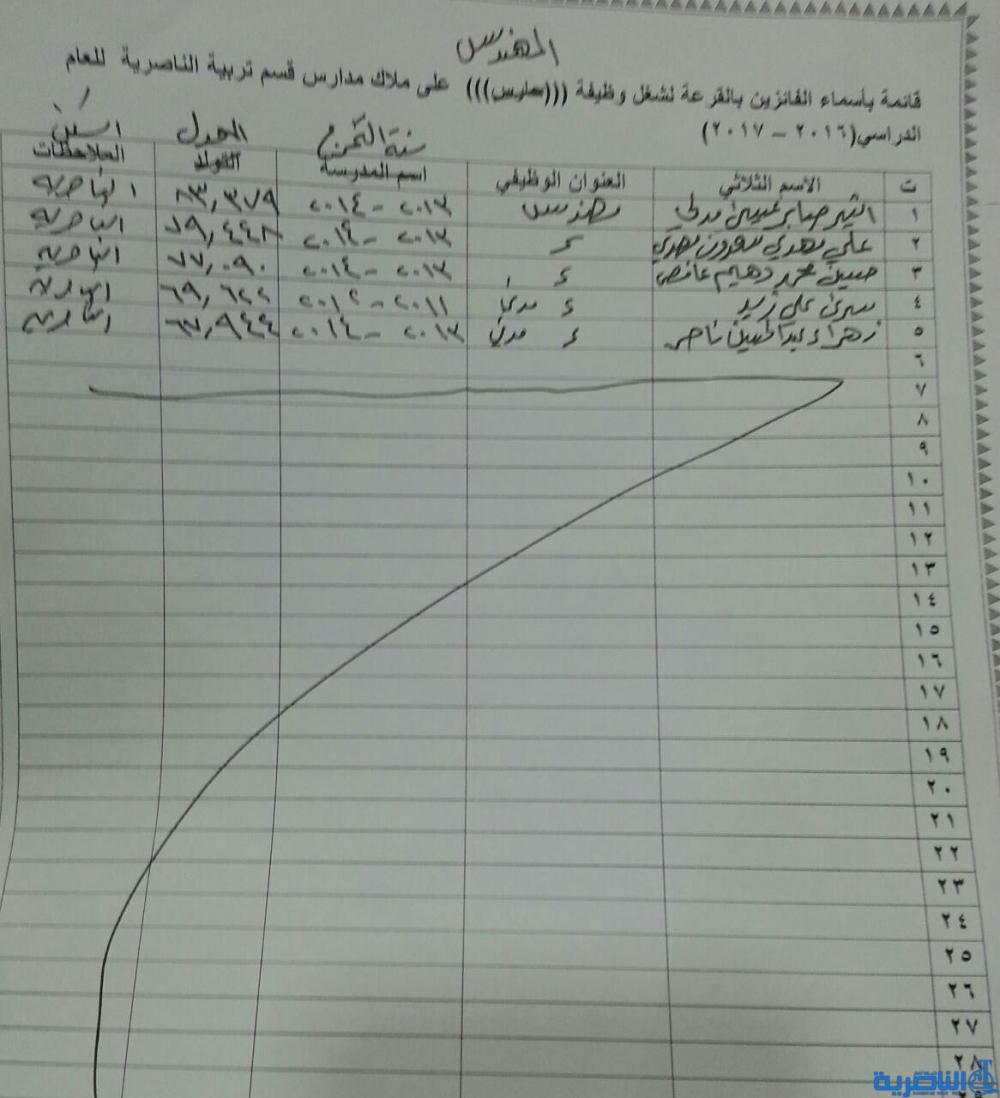 المهندس
قائمة بأسماء الفائزين بالقرعة لشغل وظيفة (((حارس))) على ملاك مدارس قسم تربية الناصرية للعام
الدراسي (٢٠١٦ – ٢٠١٧)
سنة التخرج المعدل
ت الاسم الثلاثي العنوان الوظيفي اسم المدرسة التولد الملاحظات
١ صابر مهندس ٢٠١٣ - ٢٠١٤ ٨٣,٣٧٩ الناصرية
٢ علي مهدي سعدون مهدي = ٢٠١٣ - ٢٠١٤ ٧٩,٤٤٨ الناصرية
٣ حسين محمد دهيم = ٢٠١٣ - ٢٠١٤ ٧٧,٠٩٠ الناصرية
٤ علي زيد = مدني ٢٠١١ - ٢٠١٢ ٦٩,٦٢٢ الناصرية
٥ زهراء عبد الحسين ناصر = مدني ٢٠١٣ - ٢٠١٤ ٦٧,٩٤٤ الناصرية
٦
٧
٨
٩
١٠
١١
١٢
١٣
١٤
١٥
١٦
١٧
١٨
١٩
٢٠
٢١
٢٢
٢٣
٢٤
٢٥
٢٦
٢٧
٢٨
الناصرية